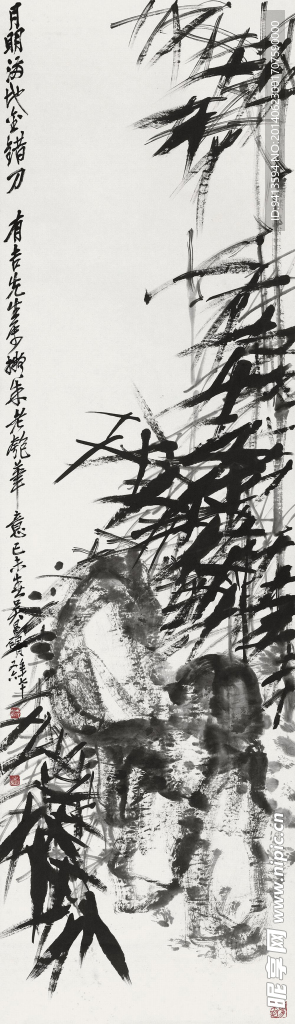 月明满地金错刀
有吉先生属拟朱老匏笔意己未岁吴昌硕年七十六
ID:9413594 NO:20140623091707590000
昵享网 www.nipic.cn